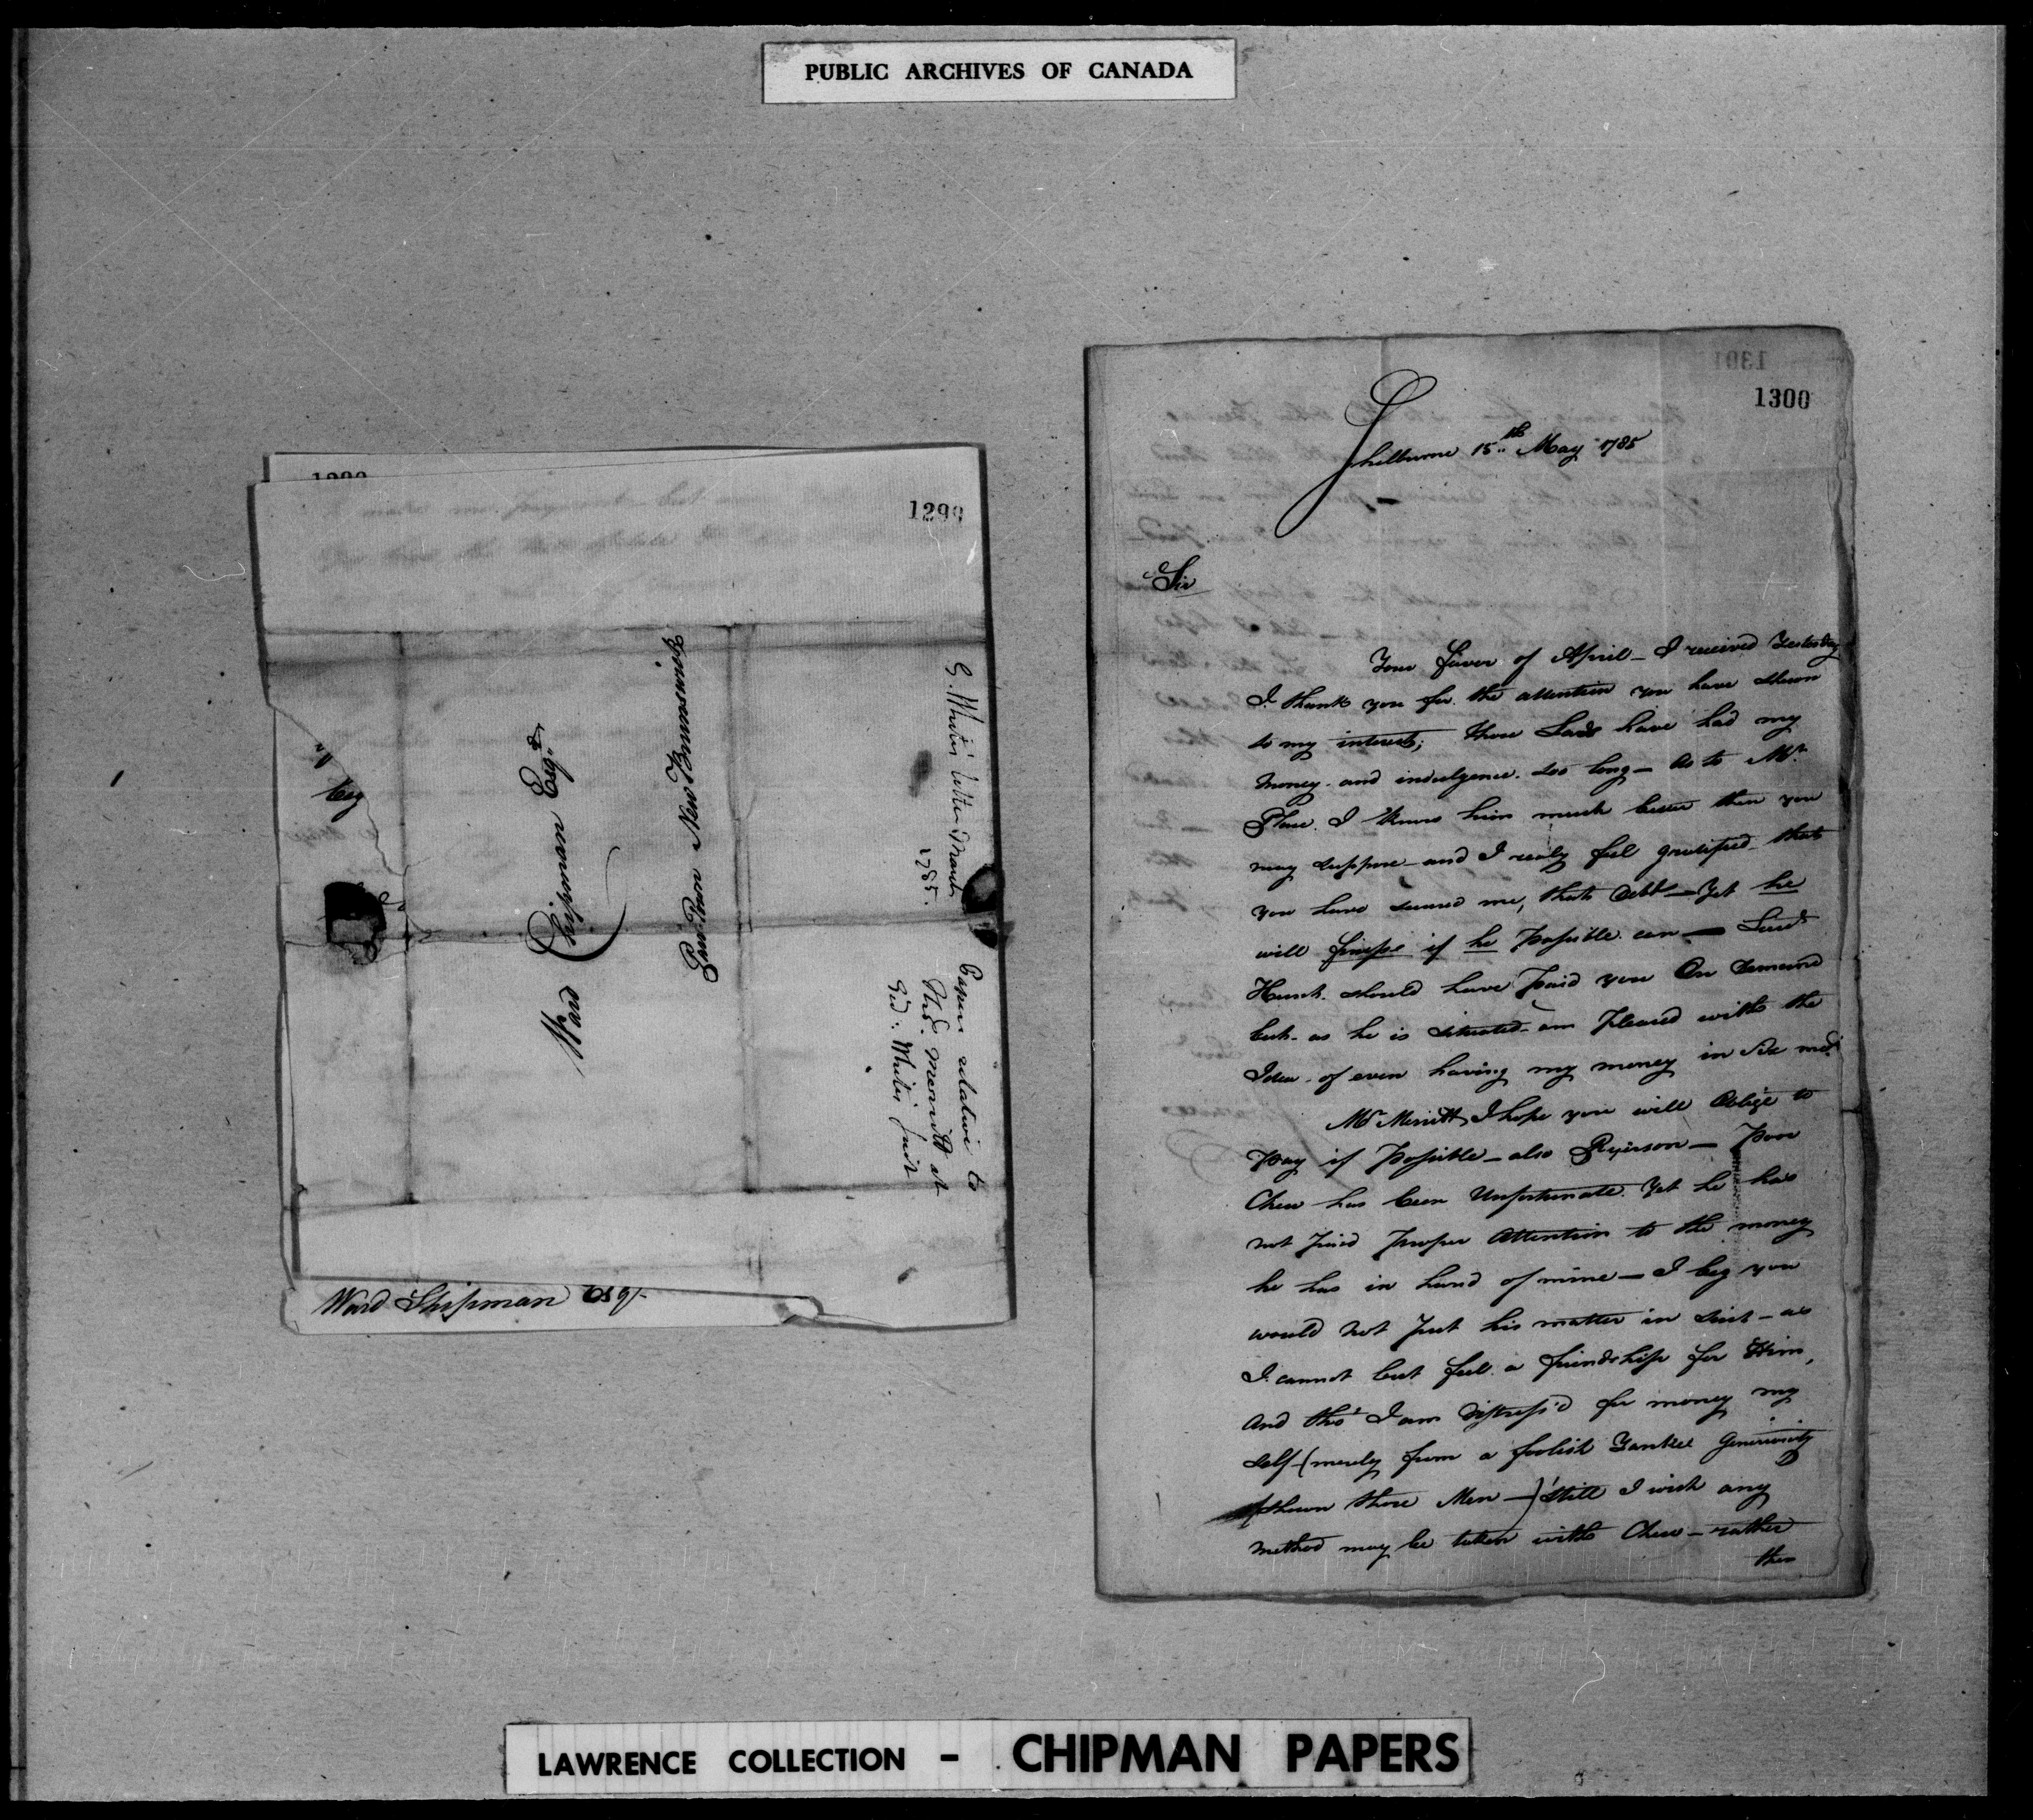 PUBLIC ARCHIVES OF CANADA
1299
Ward Chipman Esqr
Parr Town New Brunswick
G. White's letter March
1785.
Papers relative to
Thos. Merritt at
Gid: White's suit
Esq
Ward Shipman Esqr
1301
1300
Shelburne 15th May 1785
Sir
Your favor of April – I received Yesterday
I thank you for the attention you have shewn
to my interest; those Lads have had my
money and indulgence too long – as to Mr
I know him much better than you
may suppose – and I realy feel gratified that
you have secured me, that Debt – Yet he
will if he Possible can –
should have Paid you On demand
but as he is situated – am Pleased with the
Idea of even having my money in six mos.
Mr Merritt I hope you will Oblige to
Pay if Possible – also Ryerson – Poor
Chew has been Unfortunate Yet he has
not Paid Proper Attention to the money
he has in hand of mine – I beg you
would not Put his matter in suit – as
I cannot but feel a friendship for Him,
and tho' I am Distress'd for money my
self – (merely from a foolish Yankee Generiosity
shewn those Men –) still I wish any
method may be taken with Chew – rather
then
LAWRENCE COLLECTION - CHIPMAN PAPERS